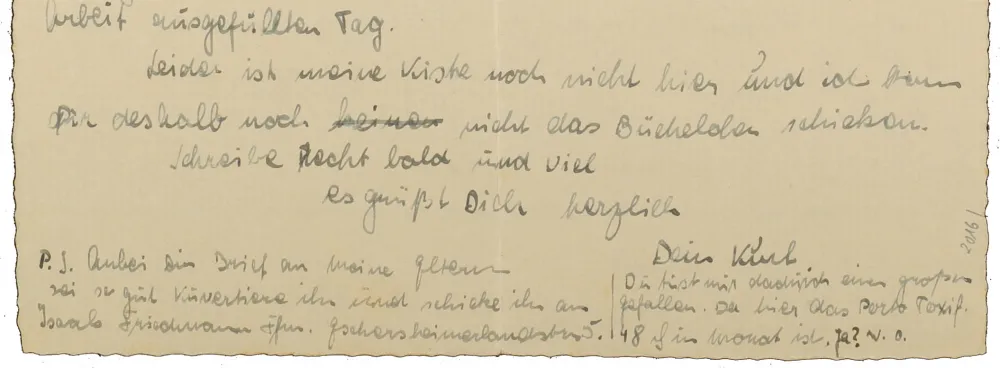 Arbeit ausgefüllten Tag.
Leider ist meine Kiste noch nicht hier und ich kann
Dir deshalb noch keinen nicht das Büchelchen schicken.
Schreibe recht bald und viel
es grüßt Dich herzlich
Dein Kurt
P.S. Anbei ein Brief an meine Eltern
sei so gut Kuvertiere ihn und schicke ihn an
Isaak Friedmann Ffm. Eschersheimerlandstr. 5.
Du tust mir dadurch einen großen
gefallen. Da hier das Porto
48 in Monat ist. Ja? 
2016/